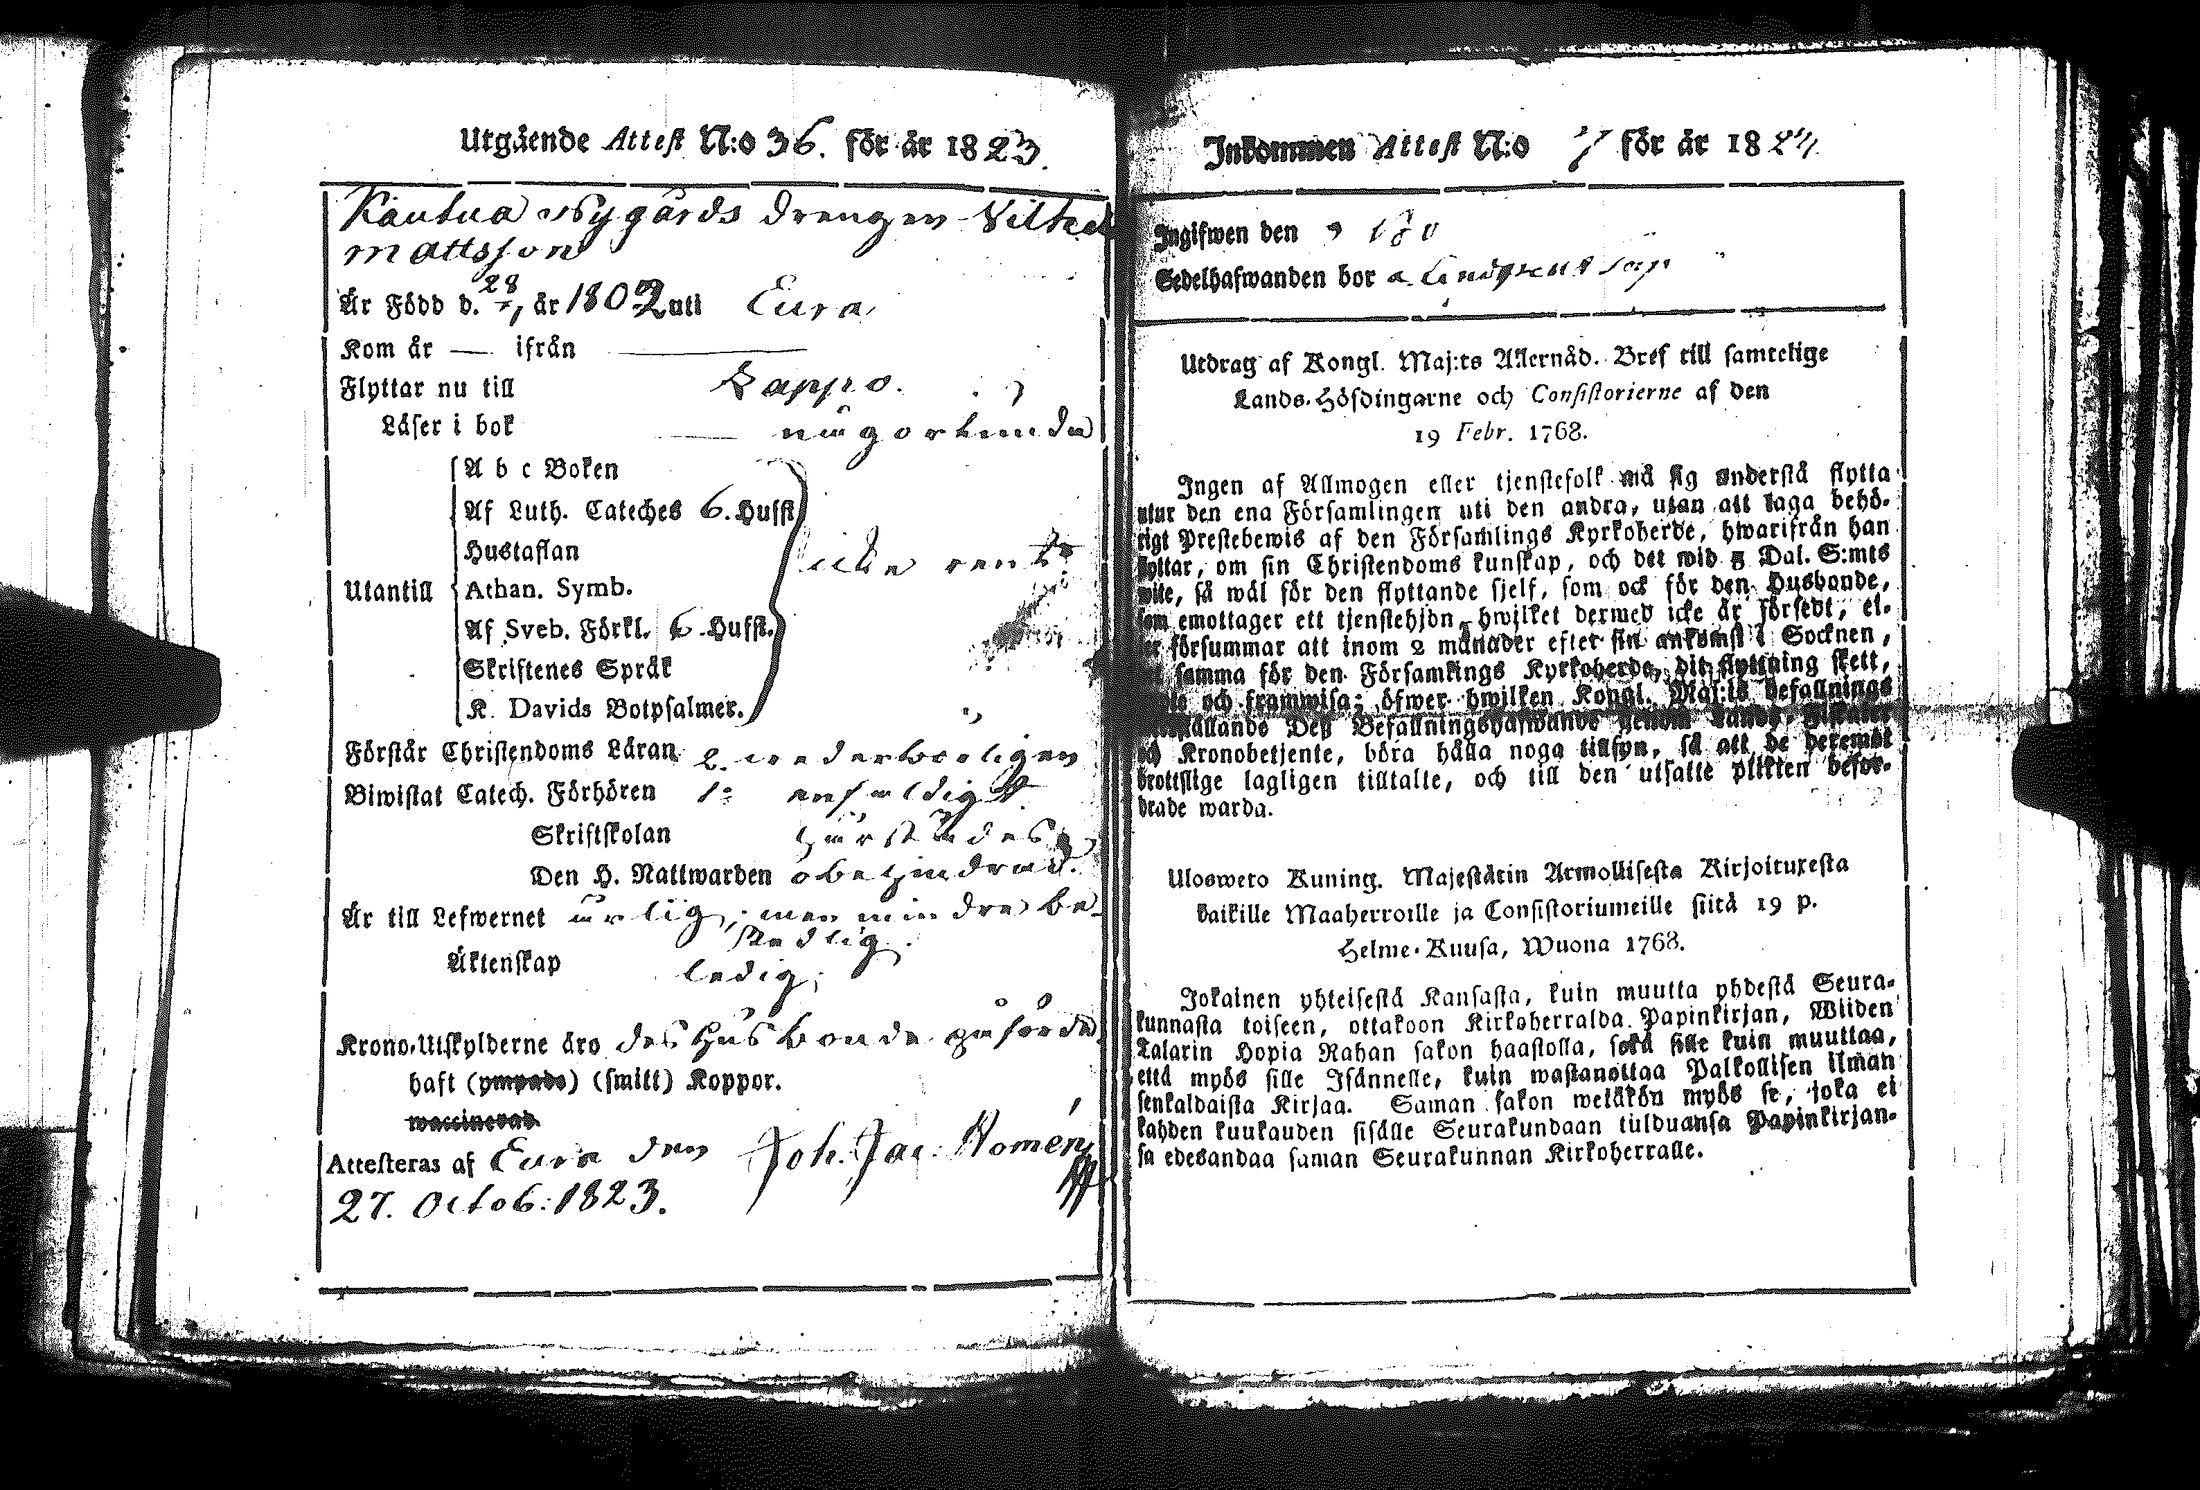 Utgående Attest N:o 36. för år 1823.
Kautua Nygårds drengen Vilhel
Mattsson
Är Född d. 28/7 år 1802 uti Eura
Kom år — ifrån —
Flyttar nu till Kappo.
Läser i bok — någorlunda
A b c Boken
Af Luth. Cateches 6. Hufst.
Hustaflan
icke rent.
Utantill
Athan. Symb.
Af Sveb. Förkl. 6. Hufst.
Skriftenes Språk
K. Davids Botpsalmer.
Förstår Christendoms Läran
Biwistat Catech. Förhören enfaldigt
Skriftskolan härstädes
Den H. Nattwarden obehindrad.
Är till Lefwernet ärlig, men mindre be-
skedlig.
Äktenskap ledig;
Krono-Utskylderne äro des Husbonde påförde
haft (ympade) (smitt) Koppor.
waccinerad
Attesteras af Eura den Joh. Jac. Homén
27. Octob: 1823.
Inkommen Attest N:o 7 för år 1824
Ingifwen den
Sedelhafwanden bor
Utdrag af Kongl. Maj:ts Allernåd. Bref till samtelige
Lands-Höfdingarne och Consistorierne af den
19 Febr. 1768.
Ingen af Allmogen eller tjenstefolk må sig understå flytta
utur den ena Församlingen uti den andra, utan att taga behö-
rigt Prestebewis af den Församlings Kyrkoherde, hwarifrån han
flyttar, om sin Christendoms kunskap, och det wid 5 Dal. S:mts
wite, så wäl för den flyttande sjelf, som ock för den Husbonde,
som emottager ett tjenstehjon, hwilket dermed icke är försedt, el-
ler försummar att inom 2 månader efter sin ankomst i Socknen,
samma för den Församlings Kyrkoherde, dit flyttning skett,
och framwisa; öfwer hwilken Kongl. Maj:ts befallnings
Deß Befallningshafwande genom Lands, Fiskaler
och Kronobetjente, böra hålla noga tillsyn, så att de deremot
brottslige lagligen tilltalte, och till den utsatte plikten befor-
drade warda.
Ulosweto Kuning. Majestätin Armollisesta Kirjoituxesta
kaikille Maaherroille ja Consistoriumeille siitä 19 p.
Helme-Kuusa, Wuona 1768.
Jokainen yhteisestä Kansasta, kuin muutta yhdestä Seura-
kunnasta toiseen, ottakoon Kirkoherralda Papinkirjan, Wiiden
Talarin Hopia Rahan sakon haastolla, sekä sille kuin muuttaa,
että myös sille Isännelle, kuin wastanottaa Palkollisen ilman
senkaldaista Kirjaa. Saman sakon wetäkön myös se, joka ei
kahden kuukauden sisälle Seurakundaan tulduansa Papinkirjan-
sa edesandaa saman Seurakunnan Kirkoherralle.